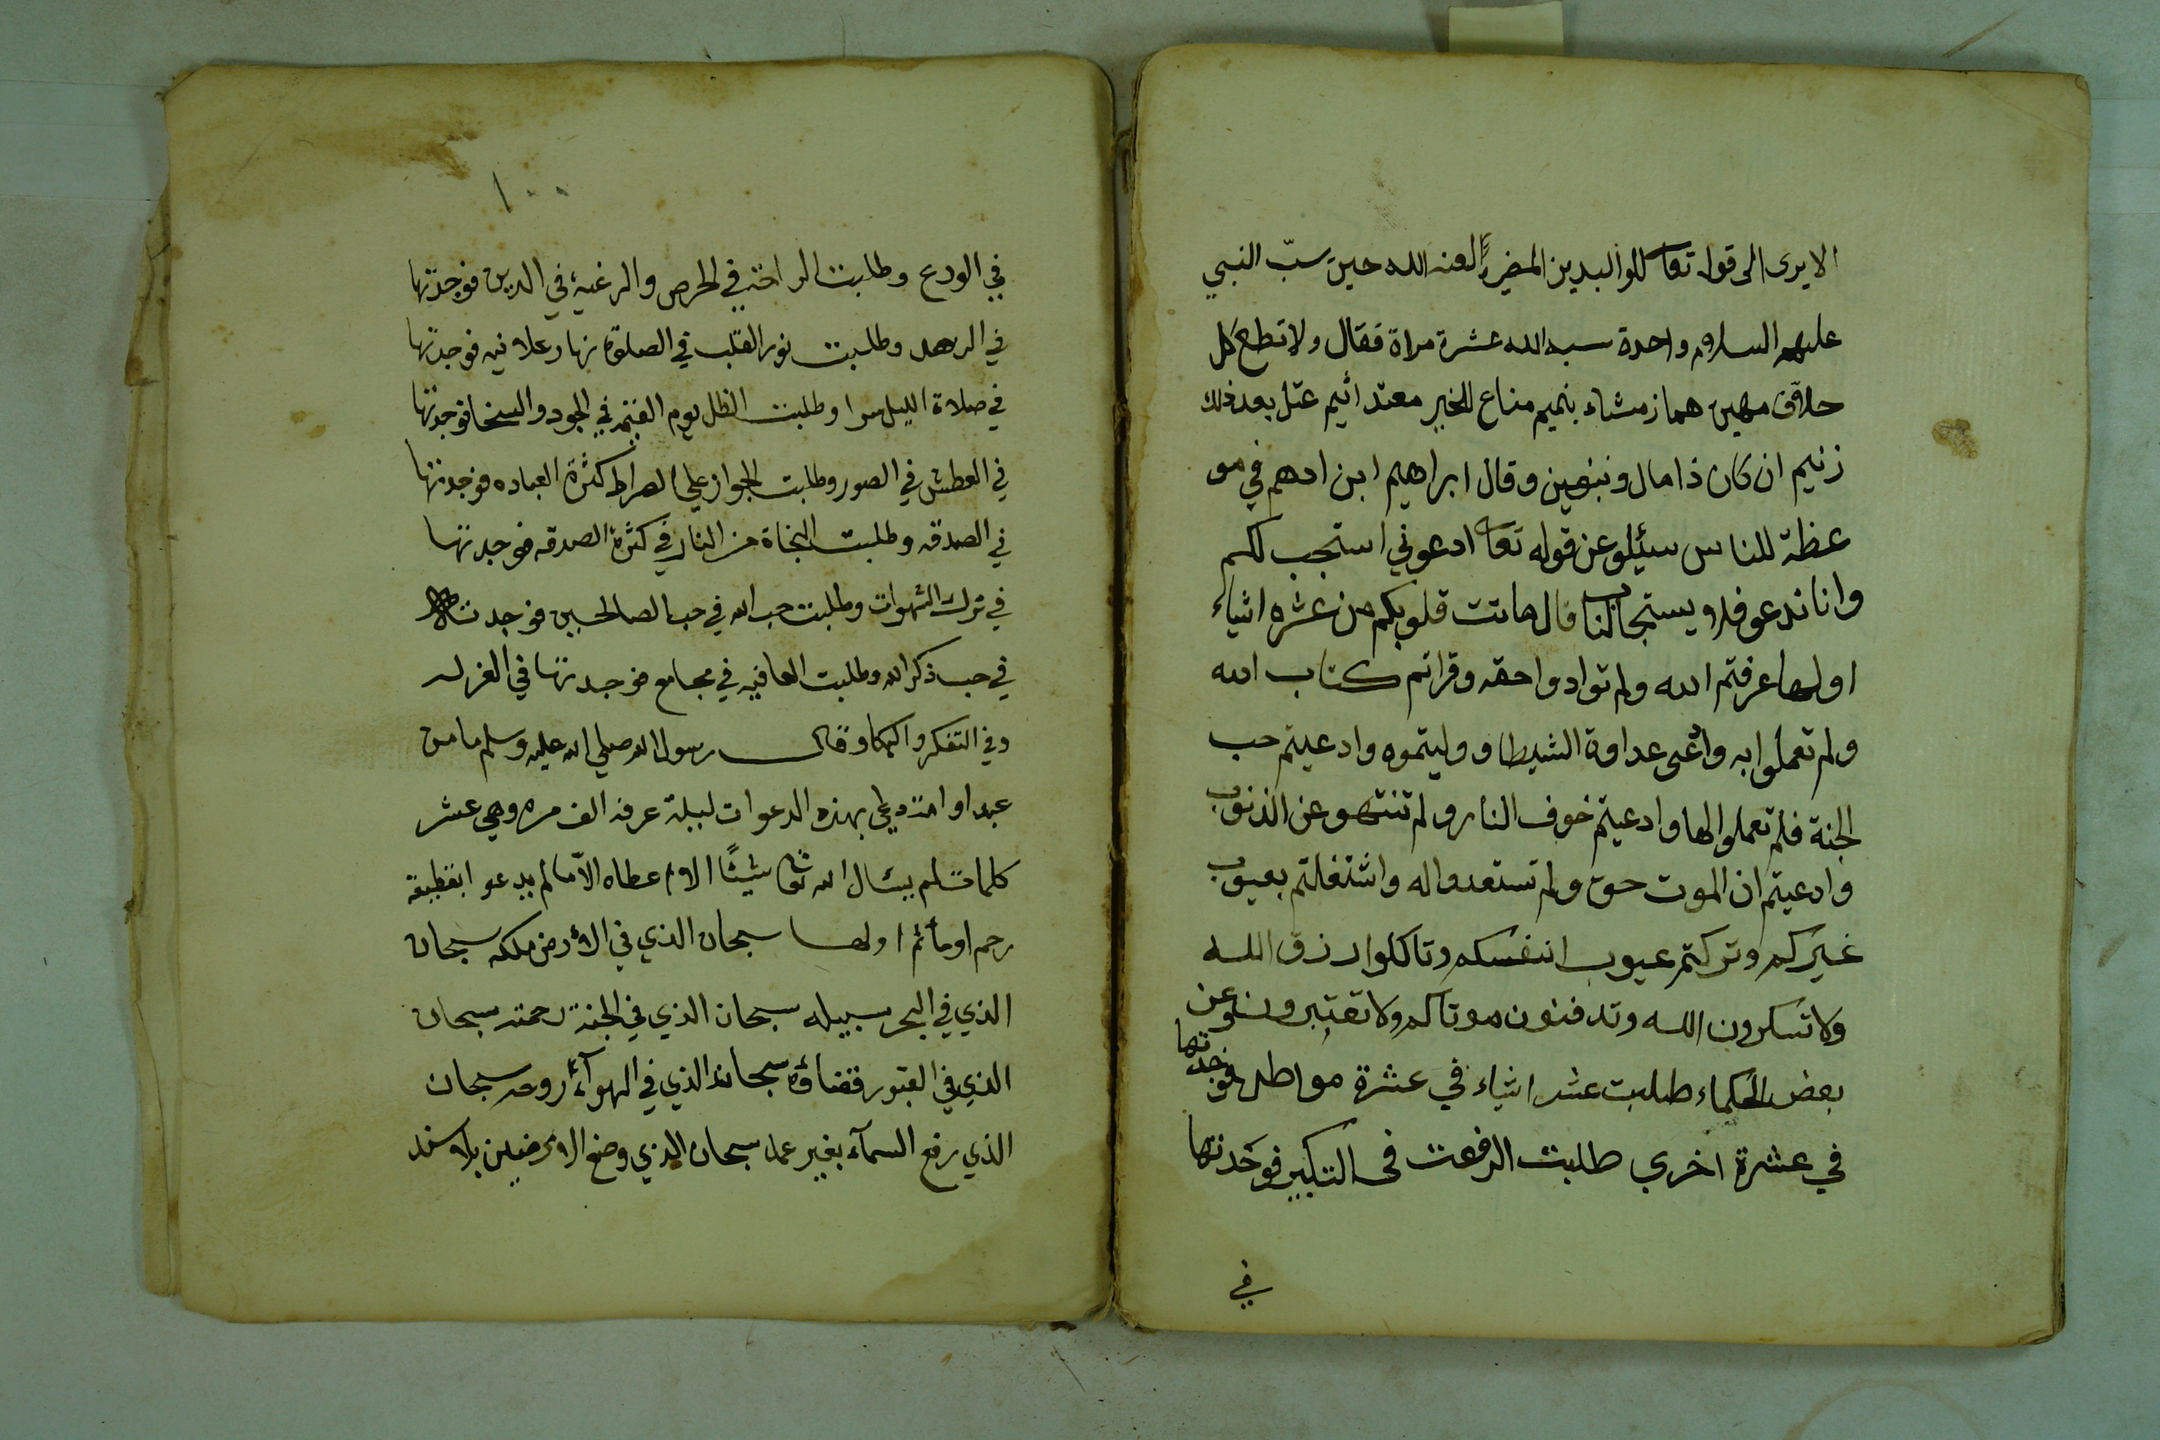 الا يرى الى قوله تعا للوا البدين المغيرة العنه الله حين سبّ النبي
عليهم السلام واحدة سبه الله عشرة مراة فقال ولا تطع كل
حلاّف مهين هماز مشاء بنميم مناع للخير معتد اثيم عتل بعد ذلك
زنيم ان كان ذا مال ونبنين وقال ابراهيم ابن ادهم في مو
عظة للناس سيئلو عن قوله تعا ادعوني استجب لكم
وانا ندعو فلم ويستجاب لنا قال ماتت قلوبكم من عشره اشياء
اولها عرفتم الله ولم توادوا حقه وقراتم كتاب الله
ولم تعملوا به عداوة الشيطا ووليتموه وادعيتم حب
الجنة فلم تعملوا لها وادعيتم خوف النار ولم تنتهو عن الذنوب
وادعيتم ان الموت حق ولم تستعدوا له واشتغلتم بعيوب
غيركم وتركتم عيوب انفسكم وتاكلوا رزق الله
ولا تسكرون الله وتدفنون موتاكم ولا تعتبرون وعن
بعض الحكماء طلبت عشر اشياء في عشرة مواطل فوجدتها
في عشرة اخري طلبت الرفعت في التكبير فوجدتها
في
١٠٠
في الودع وطلبت الراحته في الحرص والرغبة في الدين فوجدتها
في الزهد وطلبت نور القلب في الصلوة نهار وعلانيه فوجدتها
في صلاة الليل سرا وطلبت الظل يوم القيمه في الجود والسخا فوجدتها
في العطش في الصور وطلبت الجواز علي الصراط كثرة العباده فوجدتها
في الصدقه وطلبت النجاة من النار في كثرة الصدقه فوجدتها
في ترك الشهوات وطلبت حب الله في حب الصالحين فوجدت
في حب ذكر الله وطلبت العافيه في مجامع فوجدتها في العزله
وفي التفكر والبكا وقال رسول الله صلي الله عليه وسلم ما من
عبد او امته دعي بهذه الدعوات ليلة عرفه الف مره وهي عشر
كلمات لم يسٔال الله تعا شيئًا الا اعطاه الاّ ما لم يدعو ابقطيعة
رحم او مأثم اولها سبحان الذي في الارض ملكه سبحان
الذي في البحر سبيله سبحان الذي في الجنة رحمته سبحان
الذي في القبور قضاؤه سبحان الذي في الهوآء روحه سبحان
الذي رفع السمآء بغير عمد سبحان الذي وضع الارضين بلا سند